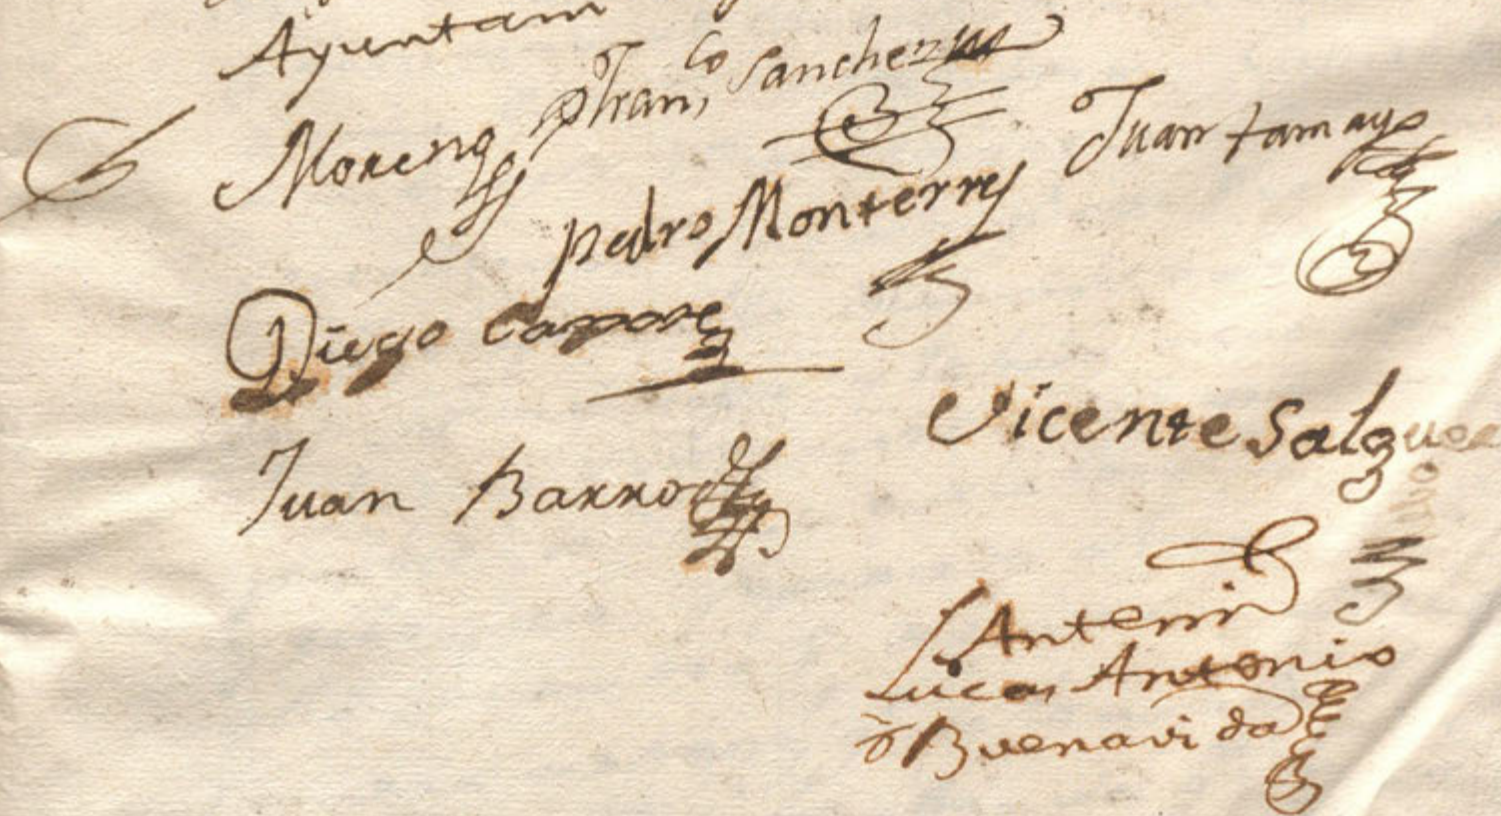 Ayuntam
Moreno Fran,co Sanchez
Juan tamayo
Pedro Monterrey
Diego
Vicente Salguero
Juan Barro
Antemi
Lucas Antonio
de Buenavida